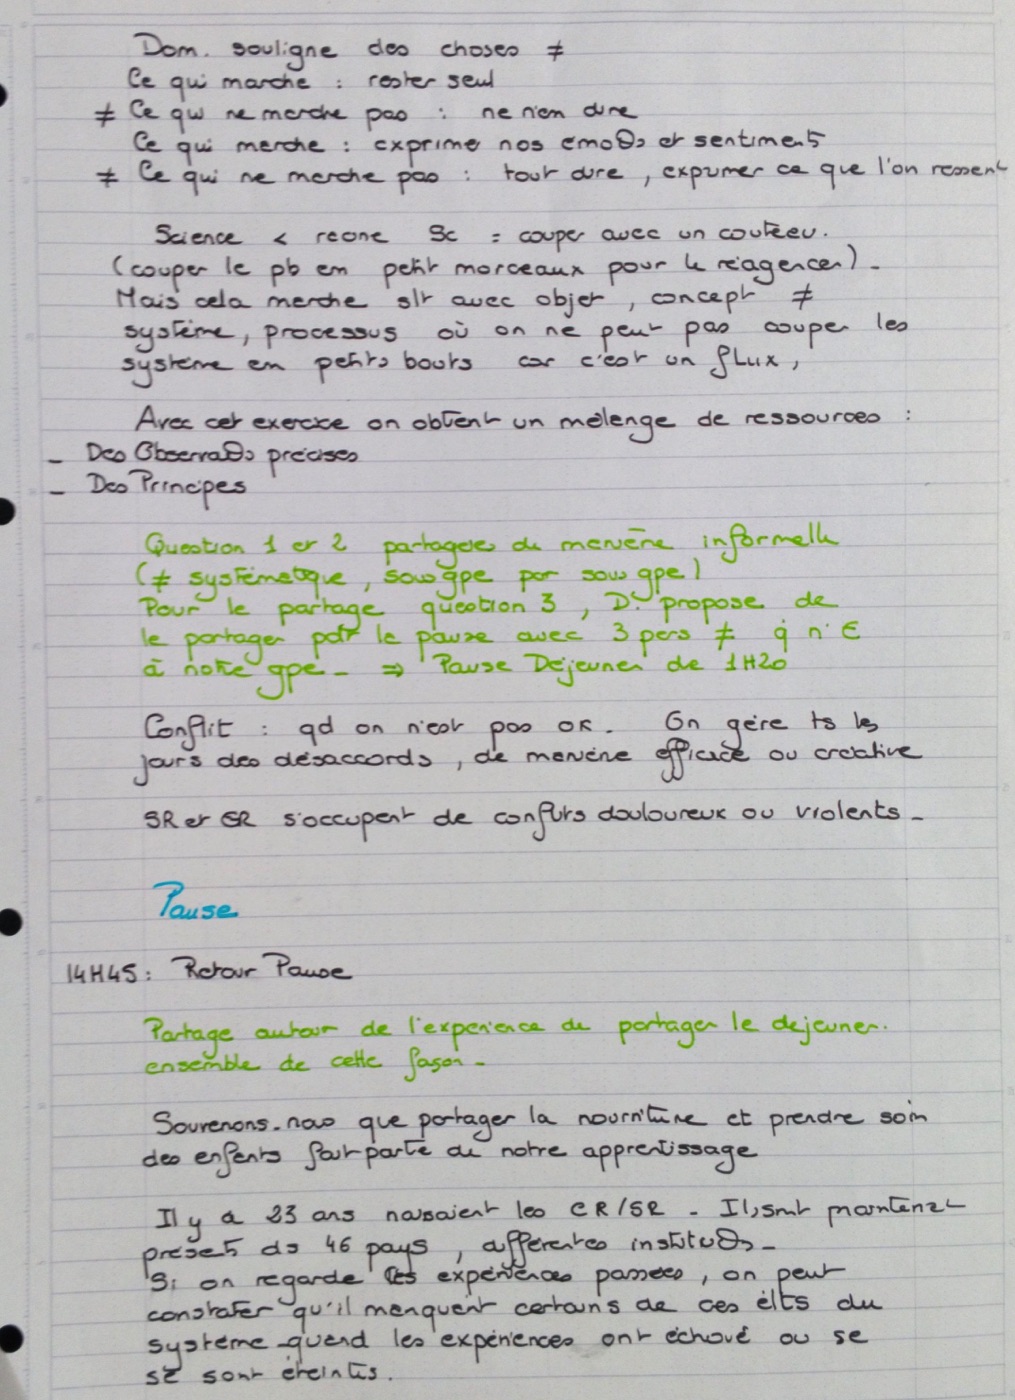 Dom. souligne des choses ≠
Ce qui marche : rester seul
≠ Ce qui ne marche pas : ne rien dire
Ce qui marche : exprime nos émoθs et sentiments
≠ Ce qui ne marche pas : tout dire, exprimer ce que l'on ressent
Science < racine Sc = couper avec un couteau.
(couper le pb en petit morceaux pour le réagencer).
Mais cela marche slt avec objet, concept ≠
système, processus où on ne peut pas couper les
système en petits bouts car c'est un flux,
Avec cet exercice on obtient un mélange de ressources :
- Des Observaθs précises
- Des Principes
Question 1 et 2 partagées de manière informelle
(≠ systématique, sous gpe par sous gpe)
Pour le partage question 3, D. propose de
le partager pdt la pause avec 3 pers ≠ q n'∈
à notre gpe - ⇒ Pause Déjeuner de 1H20
Conflit : qd on n'est pas OK. On gère ts les
jours des désaccords, de manière efficace ou créative
SR et CR s'occupent de conflits douloureux ou violents -
Pause
14H45 : Retour Pause
Partage autour de l'expérience de partager le déjeuner.
ensemble de cette façon -
Souvenons-nous que partager la nourriture et prendre soin
des enfants fait partie de notre apprentissage
Il y a 23 ans naissaient les CR/SR - Ils sont maintenant
présents ds 46 pays, différentes instituθs -
Si on regarde les expériences passées, on peut
constater qu'il manquent certains de ces élts du
système quand les expériences ont échoué ou se
se sont éteintes.